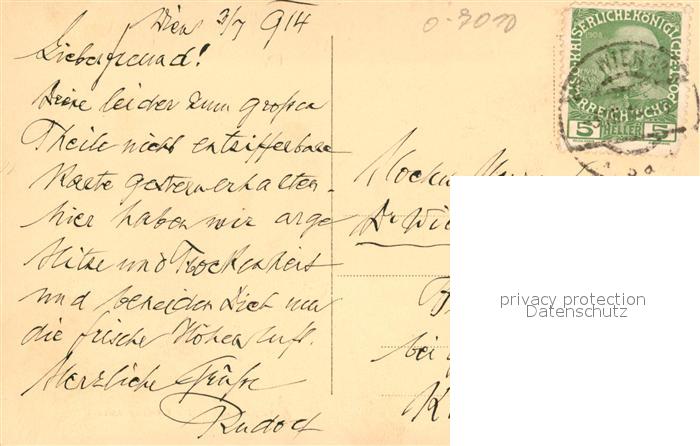 Wien 3/7 914
Lieber Freund!
Deine leider zum großen
Theile nicht entzifferbare
Karte gestern erhalten.
hier haben wir arge
Hitze und Trockenheit
und beneiden Dich um
die frische Höhenluft.
Herzliche Grüße
Rudolf
KAISERLICHE KÖNIGLICHE
ÖSTERREICHISCHE POST
1908
5 HELLER 5
WIEN
Dr Wil
bei
privacy protection
Datenschutz